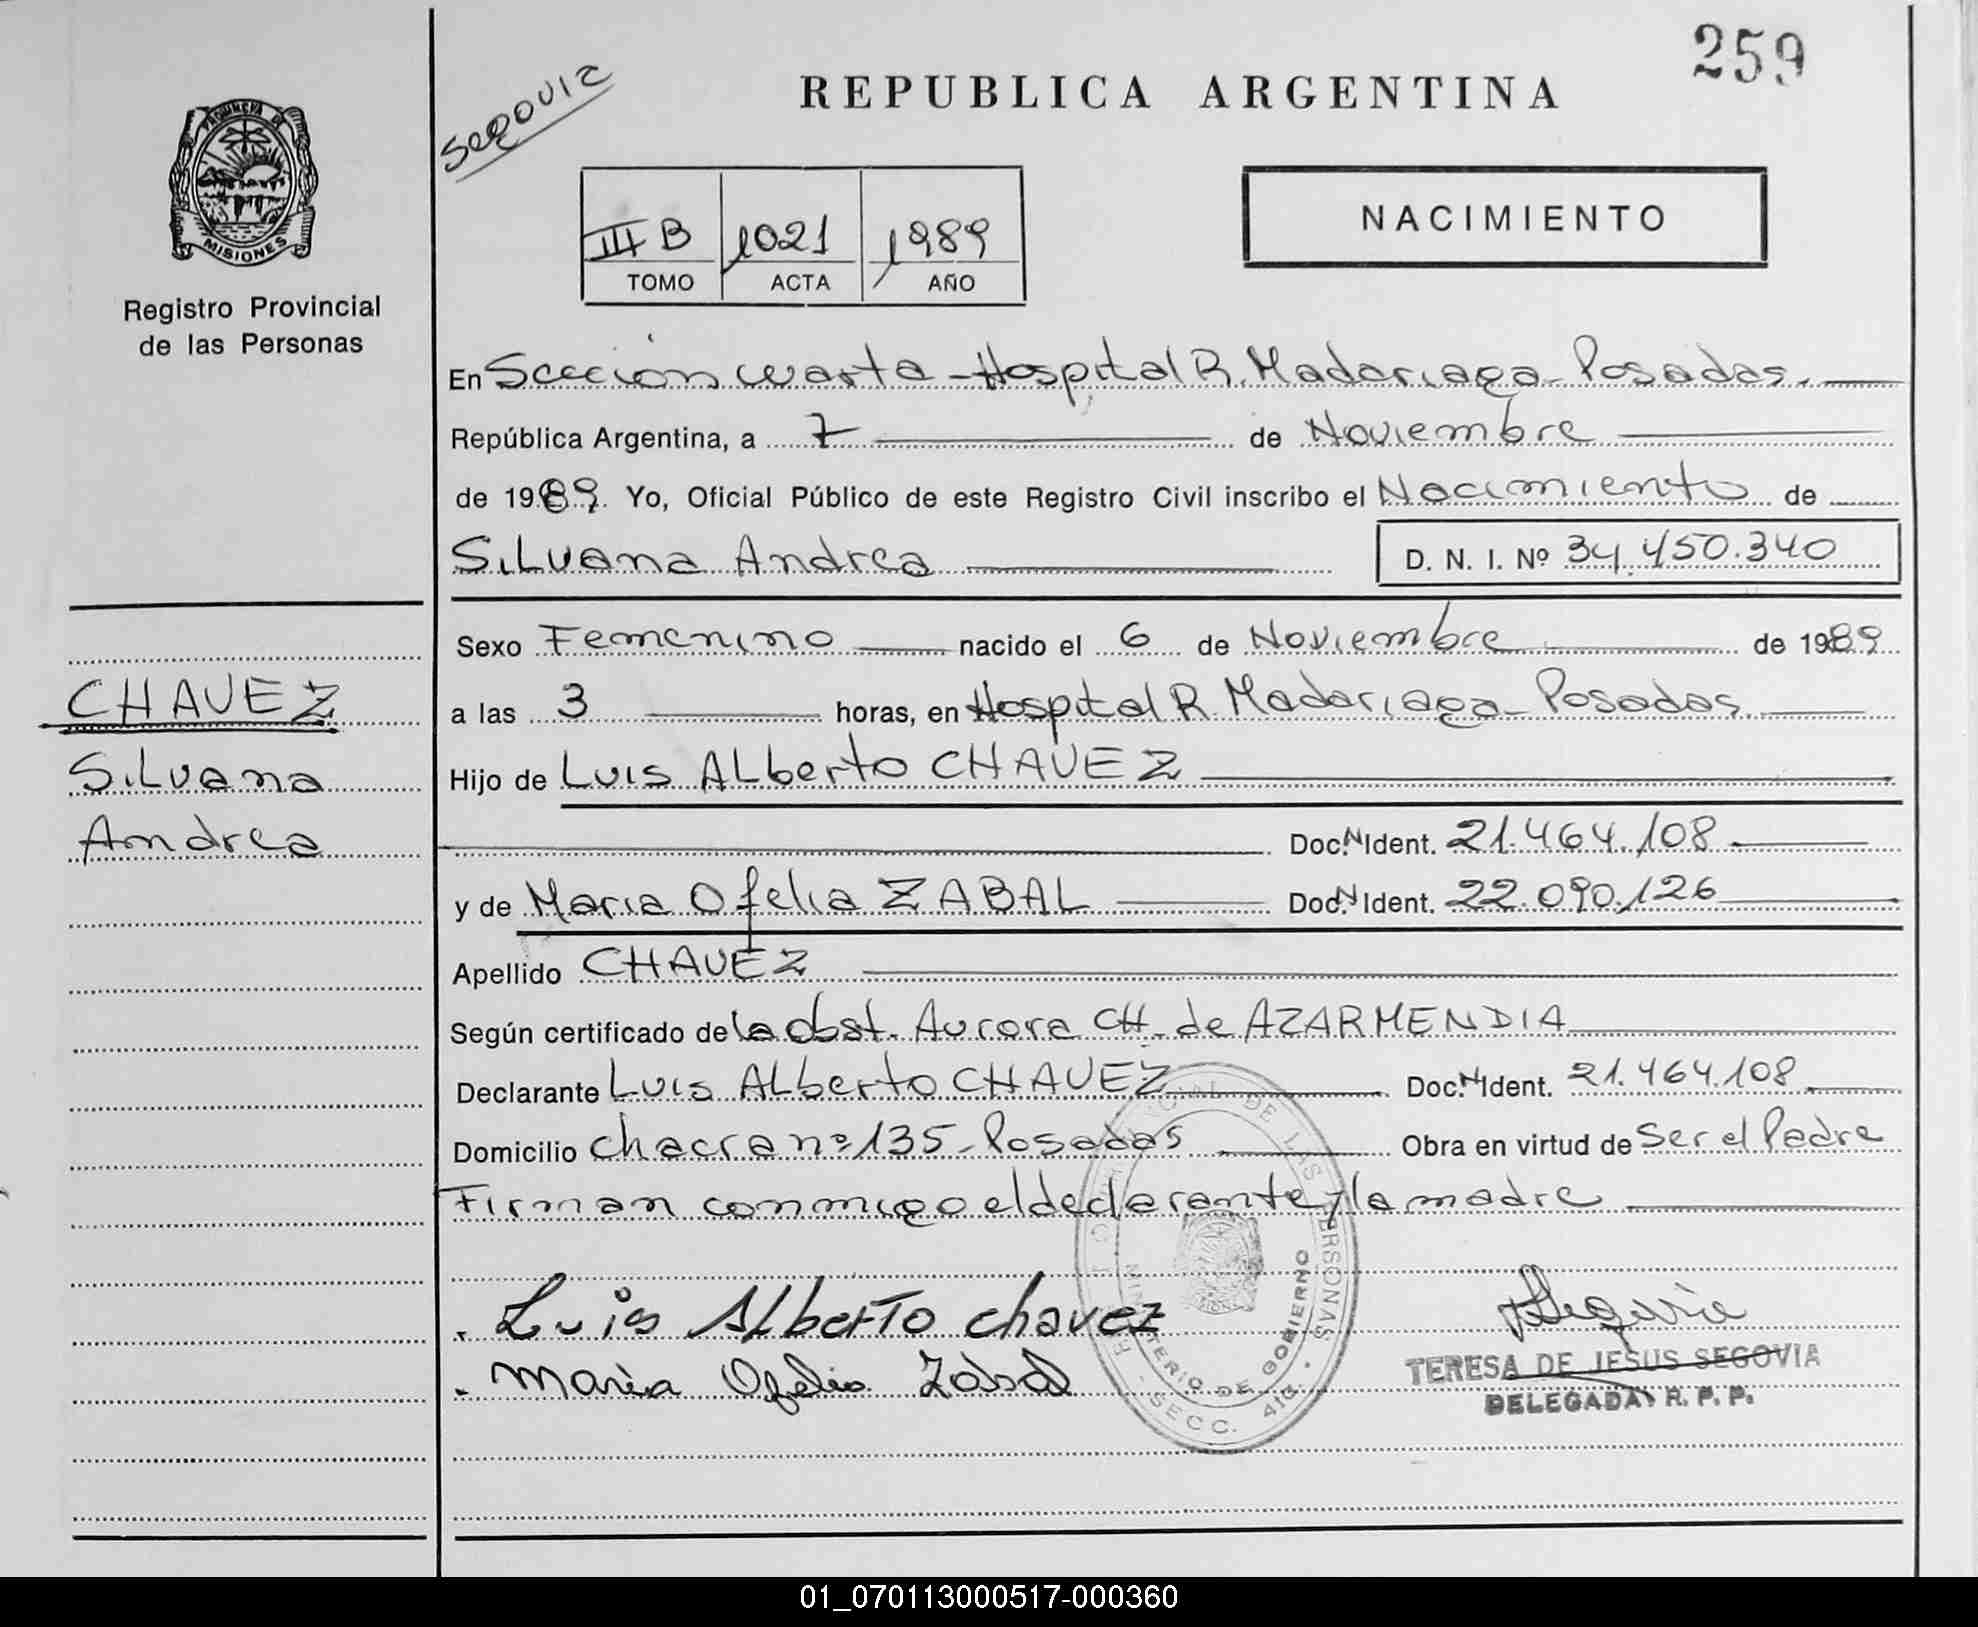 259
REPUBLICA ARGENTINA
Segovia
PROVINCIA DE
MISIONES
Registro Provincial
de las Personas
III B 1021 1989
TOMO ACTA AÑO
NACIMIENTO
En Sección cuarta - Hospital R. Madariaga - Posadas.
República Argentina, a 7 de Noviembre
de 1989. Yo, Oficial Público de este Registro Civil inscribo el Nacimiento de
Silvana Andrea D. N. I. Nº 34.450.340
Sexo Femenino nacido el 6 de Noviembre de 1989
a las 3 horas, en Hospital R. Madariaga - Posadas.
Hijo de Luis Alberto CHAVEZ
Doc. N Ident. 21.464.108
y de Maria Ofelia ZABAL Doc. N Ident. 22.090.126
Apellido CHAVEZ
Según certificado de la obst. Aurora CH. de AZARMENDIA
Declarante Luis Alberto CHAVEZ Doc. N Ident. 21.464.108
Domicilio chacra nº 135 - Posadas Obra en virtud de Ser el Padre
Firman conmigo el declarante y la madre
CHAVEZ
Silvana
Andrea
Luis Alberto chavez
Maria Ofelia Zabal
MINISTERIO DE GOBIERNO
SECC. 4ta.
TERESA DE JESUS SEGOVIA
DELEGADA R. P. P.
01_070113000517-000360